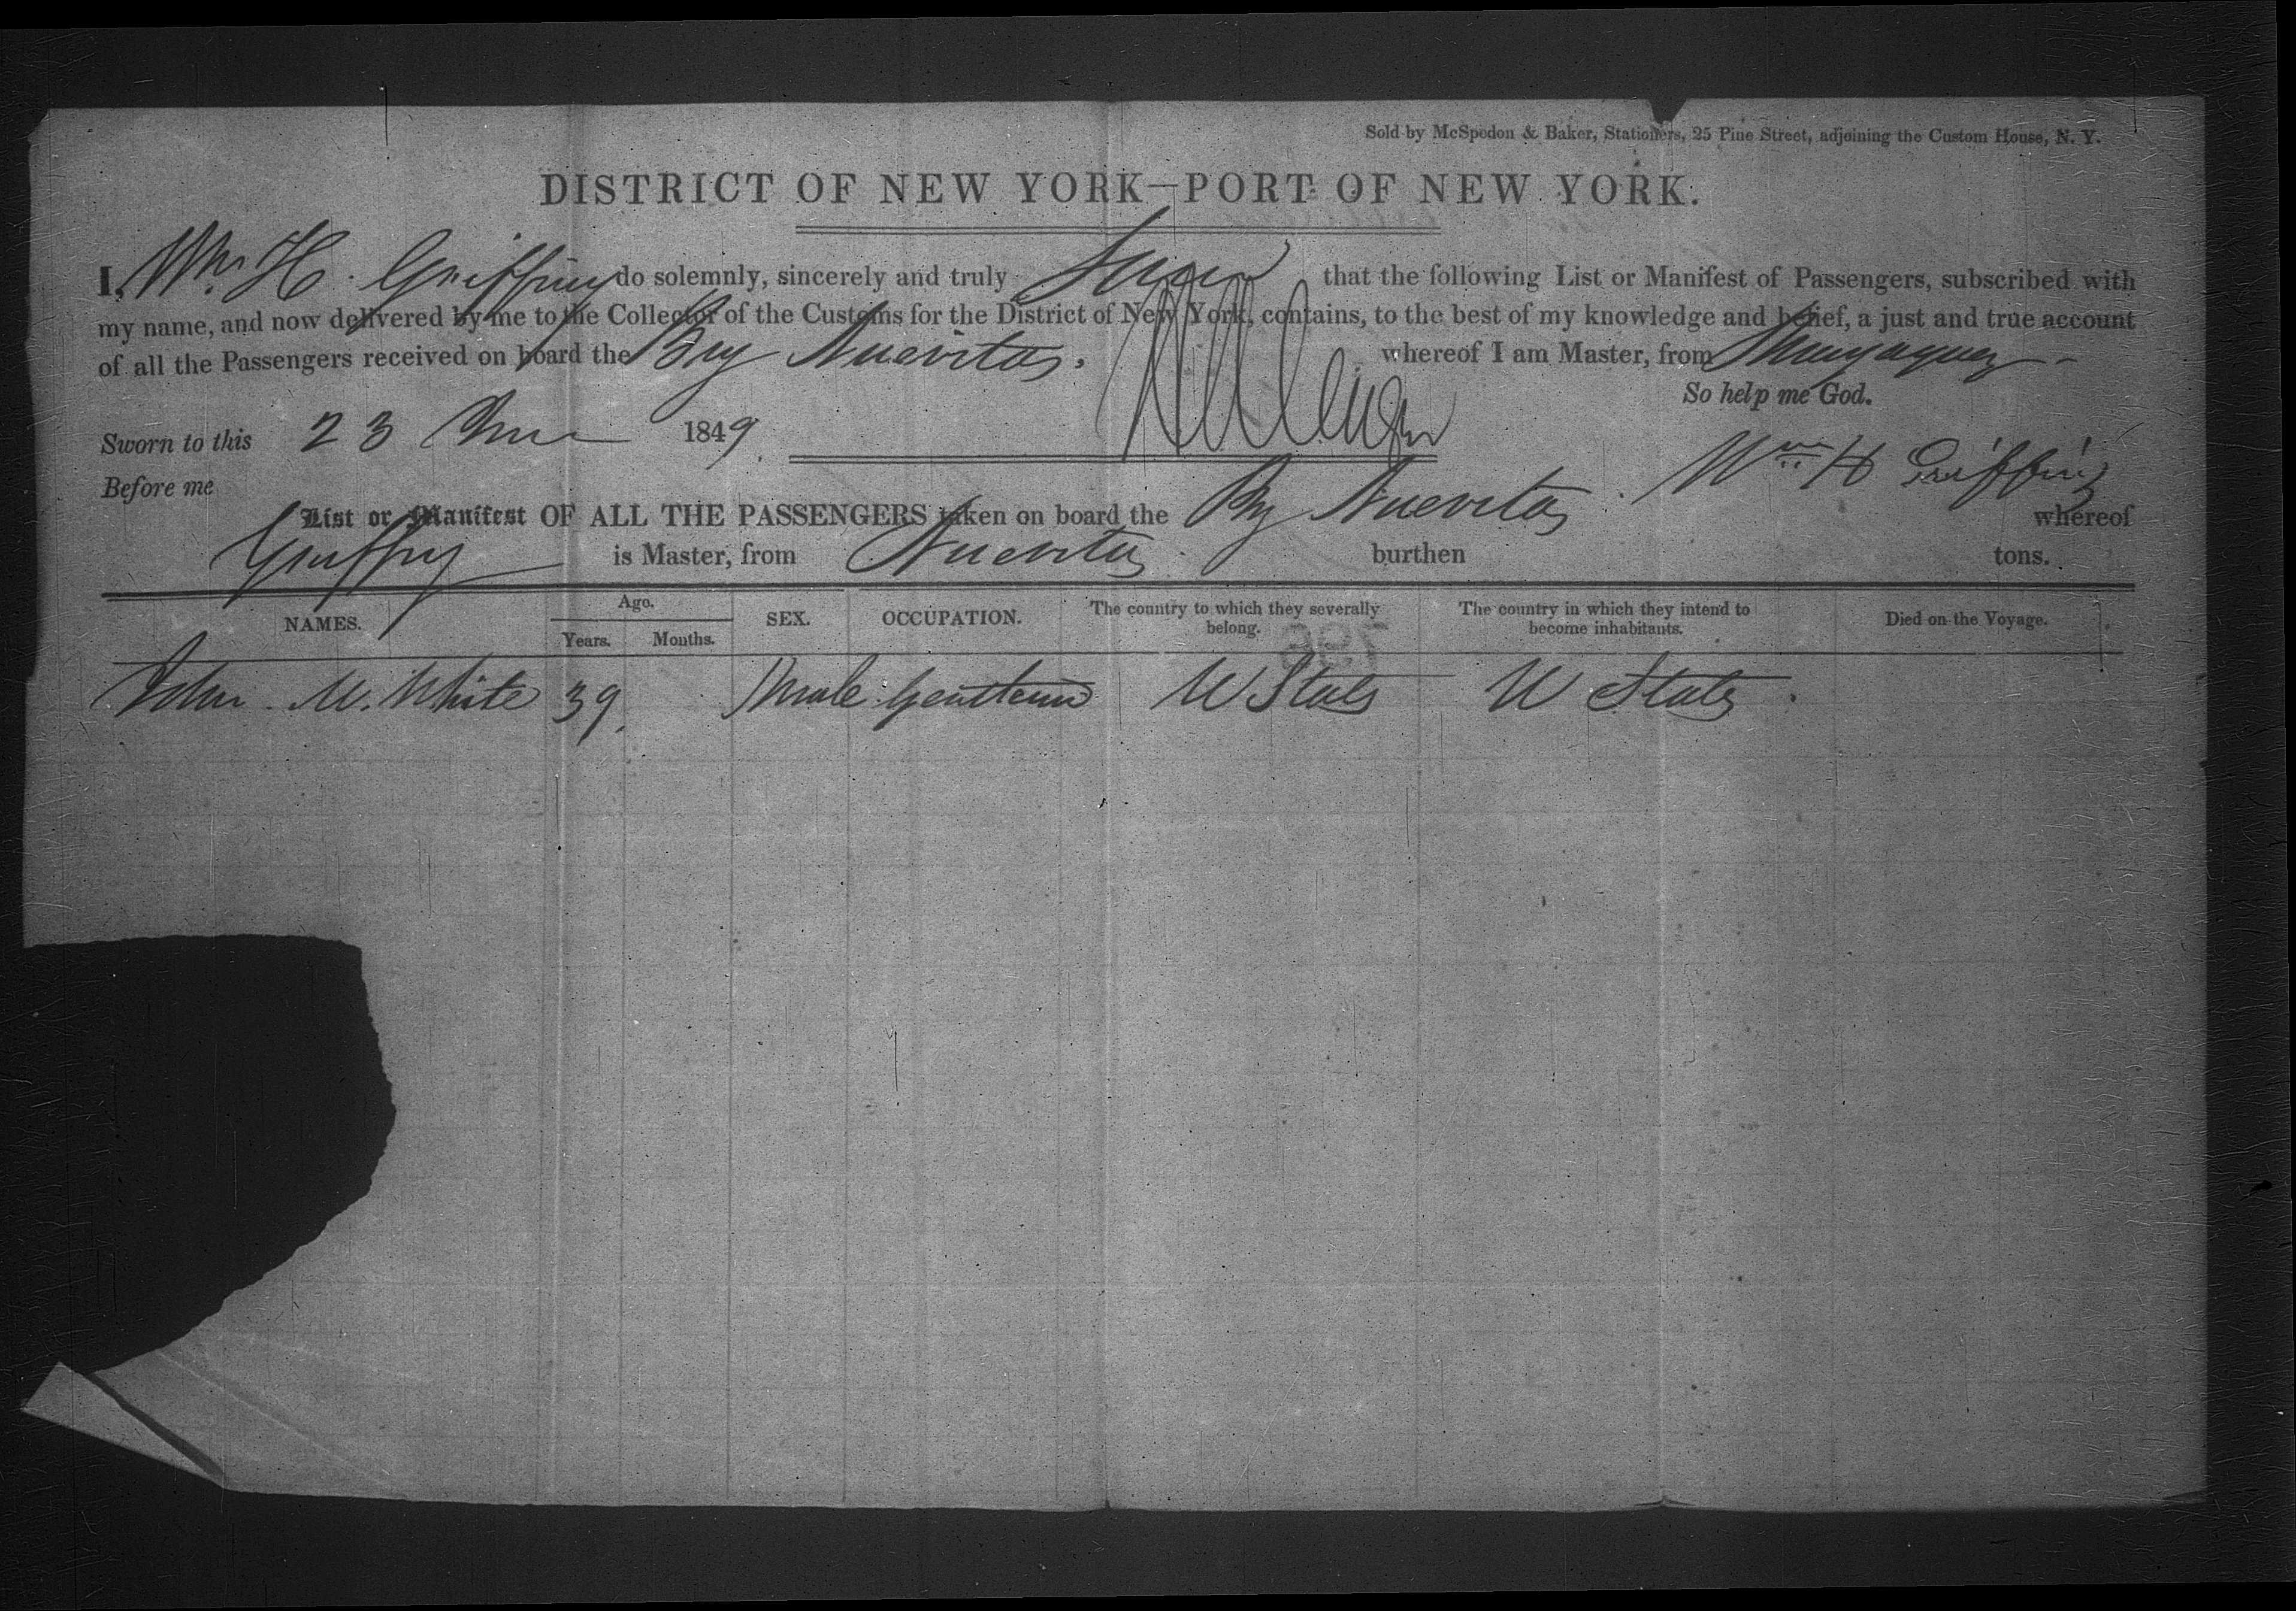 Sold by McSpedon & Baker, Stationers, 25 Pine Street, adjoining the Custom House, N. Y.
DISTRICT OF NEW YORK—PORT OF NEW YORK.
I, Wm. H. Griffing do solemnly, sincerely and truly swear that the following List or Manifest of Passengers, subscribed with
my name, and now delivered by me to the Collector of the Customs for the District of New York, contains, to the best of my knowledge and belief, a just and true account
of all the Passengers received on board the Brig Nuevitas. whereof I am Master, from Mayaguez
So help me God.
Sworn to this 23 1849.
Before me
Wm H Griffing
List or Manifest OF ALL THE PASSENGERS taken on board the Brig Nuevitas whereof
Griffing is Master, from Nuevitas burthen tons.
NAMES. Age. Years. Months. SEX. OCCUPATION. The country to which they severally belong. The country in which they intend to become inhabitants. Died on the Voyage.
John M. White 39. Male Gentleman U States U States